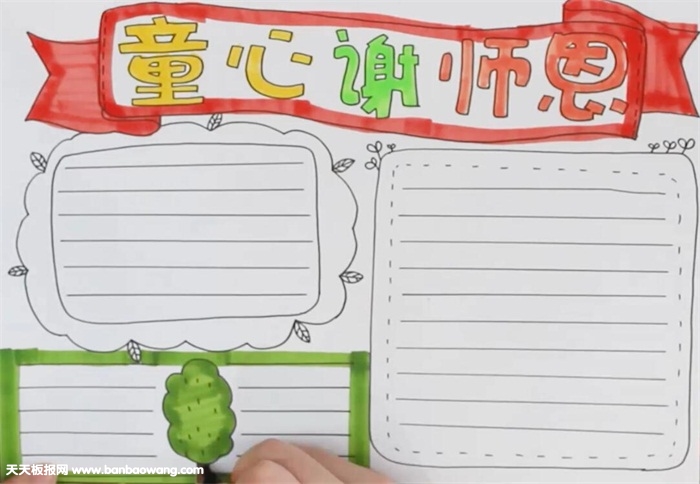 童心谢师恩
天天板报网 www.banbaowang.com